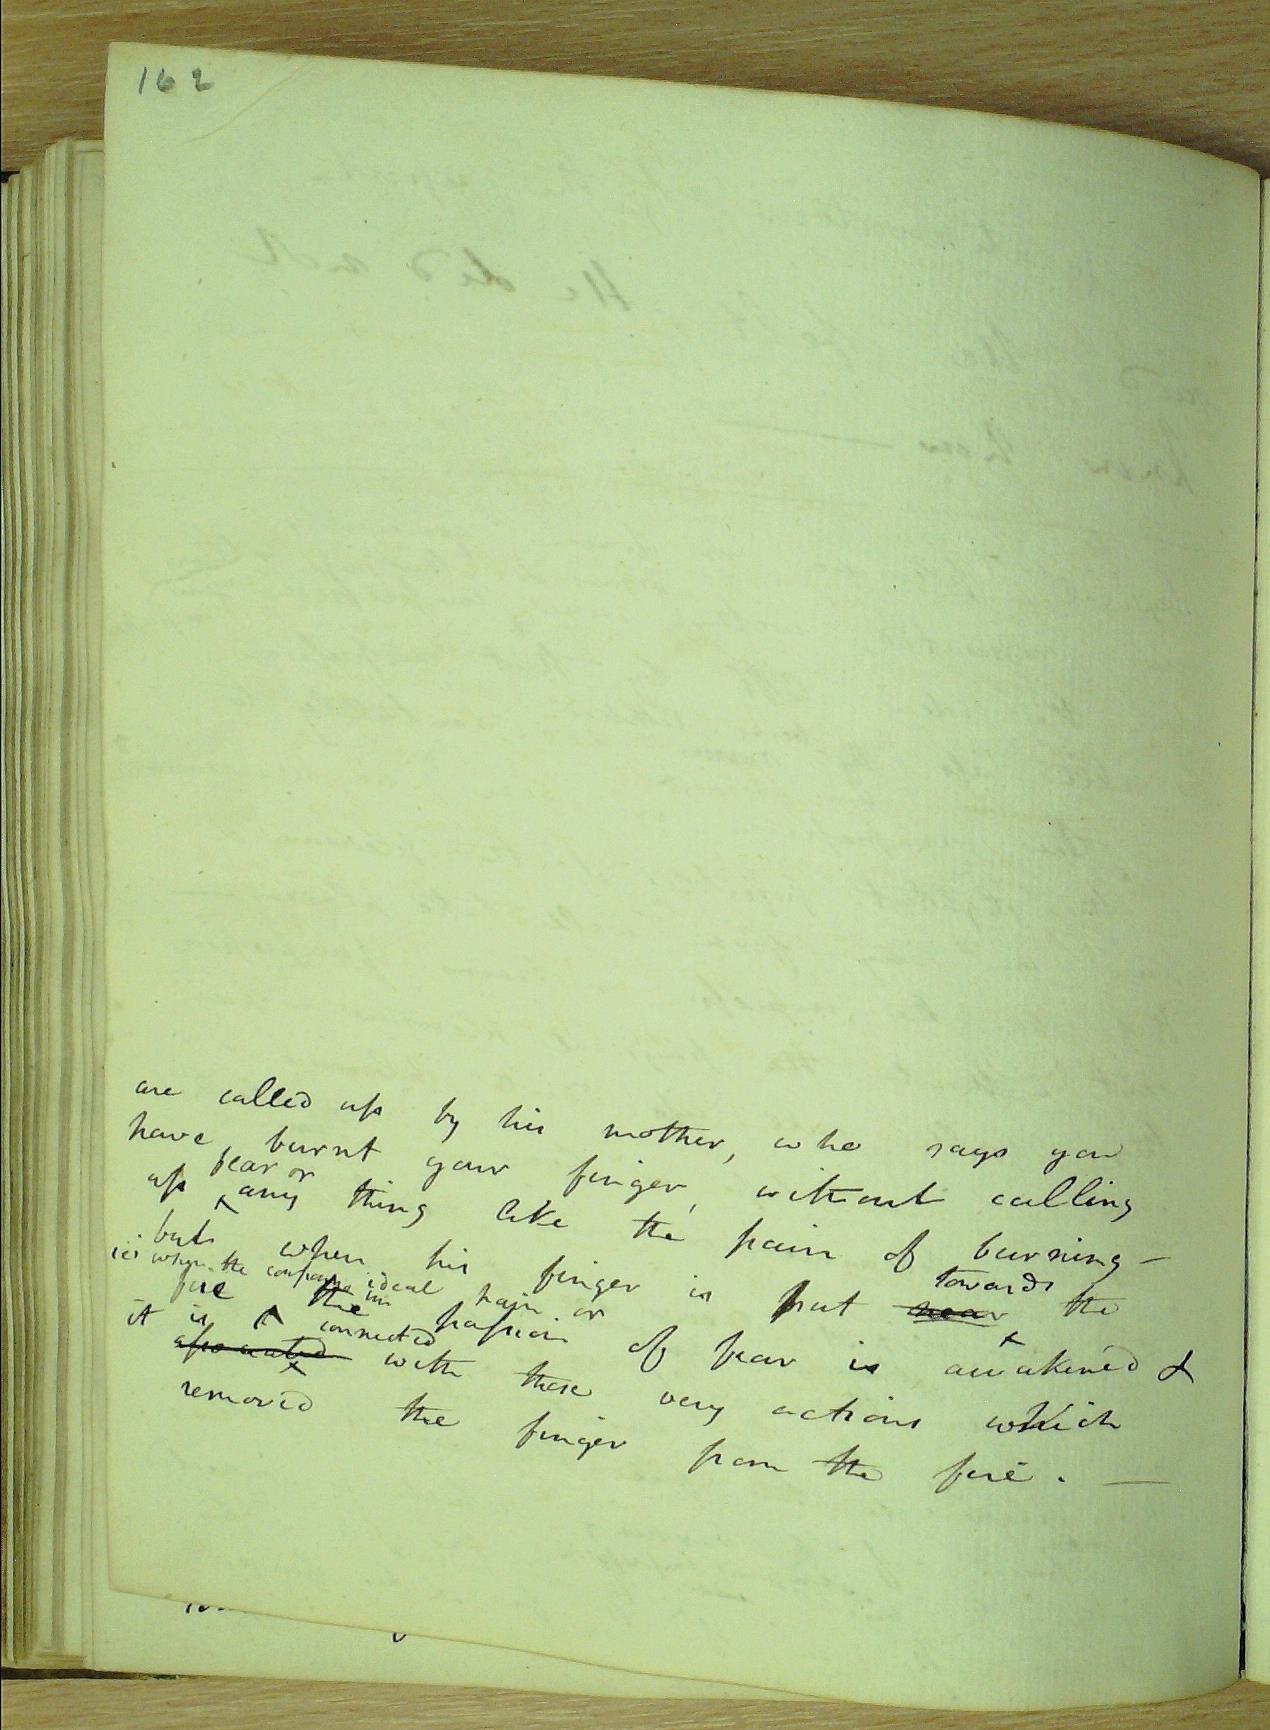 162
are called up by his mother, who says you
have burnt your finger, without calling
fear or
up any thing like the pain of burning —
but when his finger is put near the
towards
ie when the ideal pain or
fire the passion of fear is awakened &
it is connected
associated with these very actions which
removed the finger from the fire. —